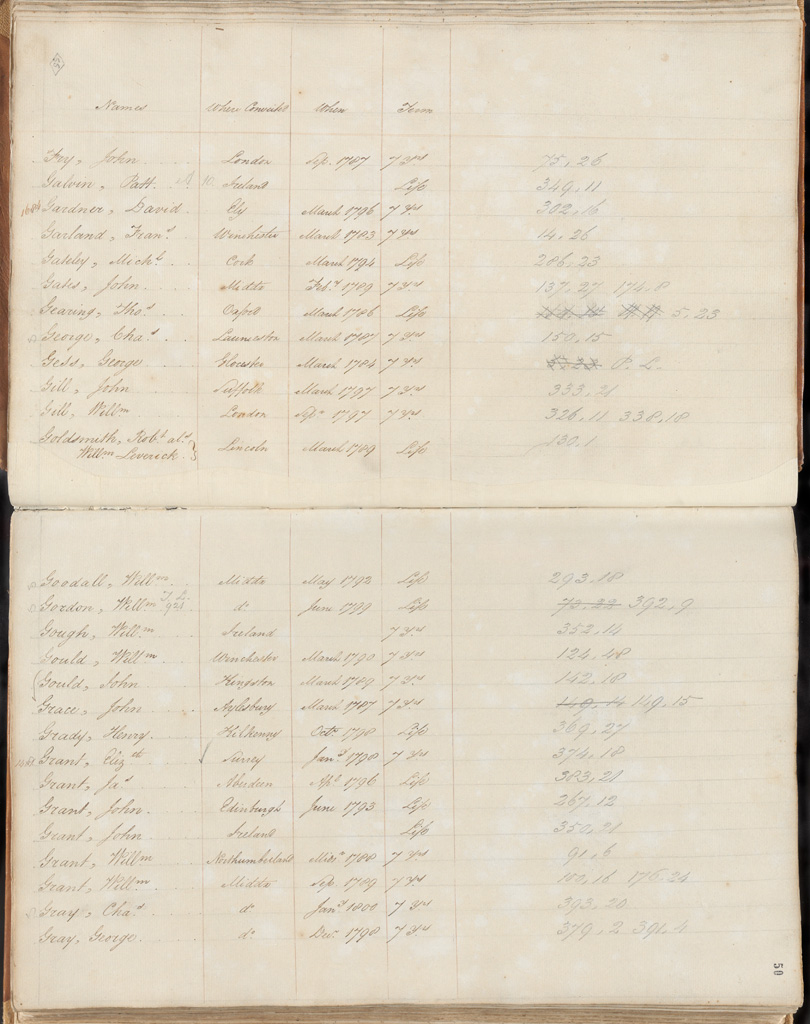 Names Where Convicted When Term
Fry, John London Sep. 1787 7 Yrs 75.26
Galvin, Patt. Ireland Life 349.11
Gardner, David Ely March 1796 7 Yrs 302.16
Garland, Frans Winchester March 1783 7 Yrs 14.26
Gateley, Michl Cork March 1794 Life 286.23
Gates, John Middx Feby 1789 7 Yrs 137.27 174.8
Gearing, Thos Oxford March 1786 Life 5.23
George, Chas Launceston March 1787 7 Yrs 150.15
Gess, George Glocester March 1784 7 Yrs P. L.
Gill, John Suffolk March 1797 7 Yrs 333.21
Gill, Willm London Sepr 1797 7 Yrs 326.11 338.18
Goldsmith, Robt als
Willm Leverick Lincoln March 1789 Life 130.1
Goodall, Willm Middx May 1792 Life 293.18
Gordon, Willm do June 1799 Life 73.22 392.9
Gough, Willm Ireland 7 Yrs 352.14
Gould, Willm Winchester March 1790 7 Yrs 124.48
Gould, John Kingston March 1789 7 Yrs 142.18
Grace, John Aylesbury March 1787 7 Yrs 149.14 149.15
Grady, Henry Kilkenny Octr 1798 Life 369.27
Grant, Elizth Surrey Jany 1798 7 Yrs 374.18
Grant, Jas Aberdeen Apl 1796 Life 383.21
Grant, John Edinburgh June 1793 Life 267.12
Grant, John Ireland Life 350.21
Grant, Willm Northumberland Midr 1788 7 Yrs 91.6
Grant, Willm Middx Sep. 1789 7 Yrs 100.16 176.24
Gray, Chas do Jany 1800 7 Yrs 393.20
Gray, George do Decr 1798 7 Yrs 379.2 391.4
50